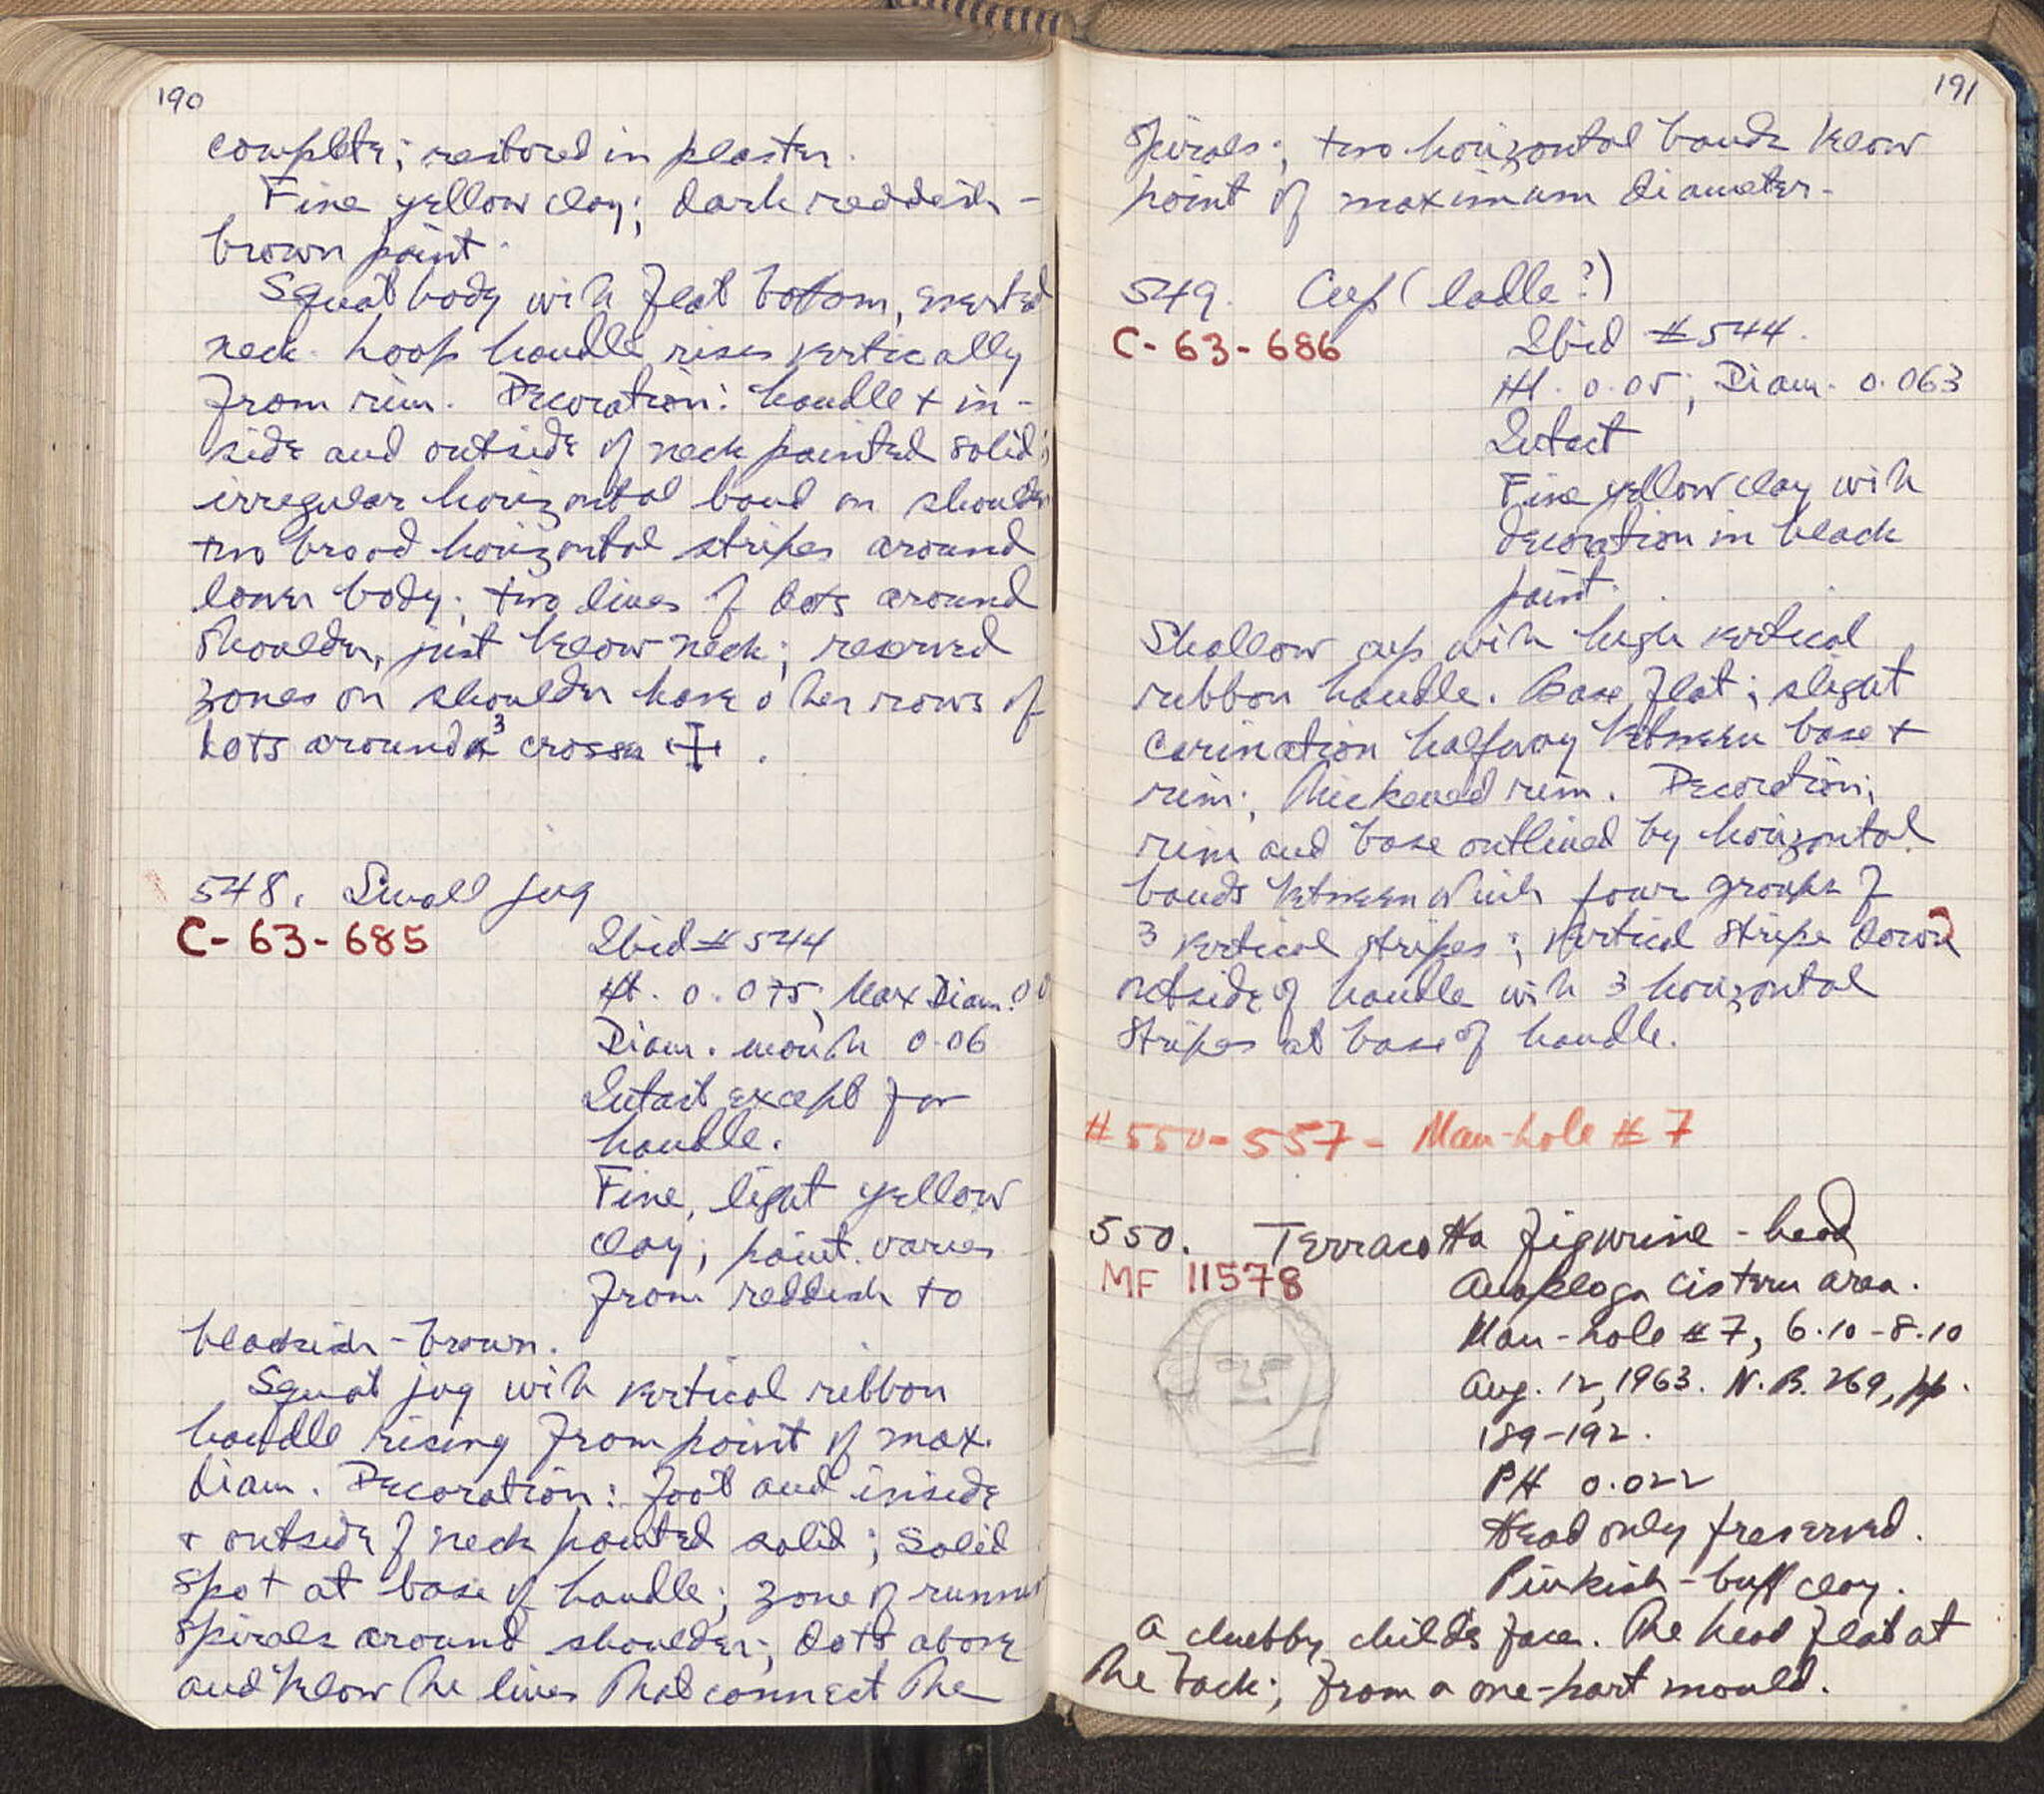 190
complete; restored in plaster.
Fine yellow clay; dark reddish-
brown paint.
Squat body with flat bottom, everted
neck. hoop handle rises vertically
from rim. Decoration: handle + in-
side and outside of neck painted solid;
irregular horizontal band on shoulder
two broad horizontal stripes around
lower body; two lines of dots around
shoulder, just below neck; reserved
zones on shoulder have other rows of
dots around 3 crosses
548. Small jug
C-63-685
Ibid #544
Ht. 0.075; Max Diam. 0.0
Diam. mouth 0.06
Intact except for
handle.
Fine, light yellow
clay; paint varies
from reddish to
blackish-brown.
Squat jug with vertical ribbon
handle rising from point of max.
diam. Decoration: foot and inside
+ outside of neck painted solid; solid
spot at base of handle; zone of running
spirals around shoulder; dots above
and below the lines that connect the
191
spirals; two horizontal bands below
point of maximum diameter.
549. Cup (ladle?)
C-63-686
Ibid #544.
Ht. 0.05; Diam. 0.063
Intact
Fine yellow clay with
decoration in black
paint.
Shallow cup with high vertical
ribbon handle. Base flat; slight
carination halfway between base +
rim; thickened rim. Decoration:
rim and base outlined by horizontal
bands between which four groups of
3 vertical stripes; vertical stripe down
outside of handle with 3 horizontal
stripes at base of handle.
#550-557- Man-hole #7
550. Terracotta figurine - head
MF 11578
Anaploga Cistern area.
Man-hole #7, 6.10-8.10
Aug. 12, 1963. N.B. 269, pp.
189-192.
PH 0.022
Head only preserved.
Pinkish-buff clay.
A chubby child's face. The head flat at
the back; from a one-part mould.